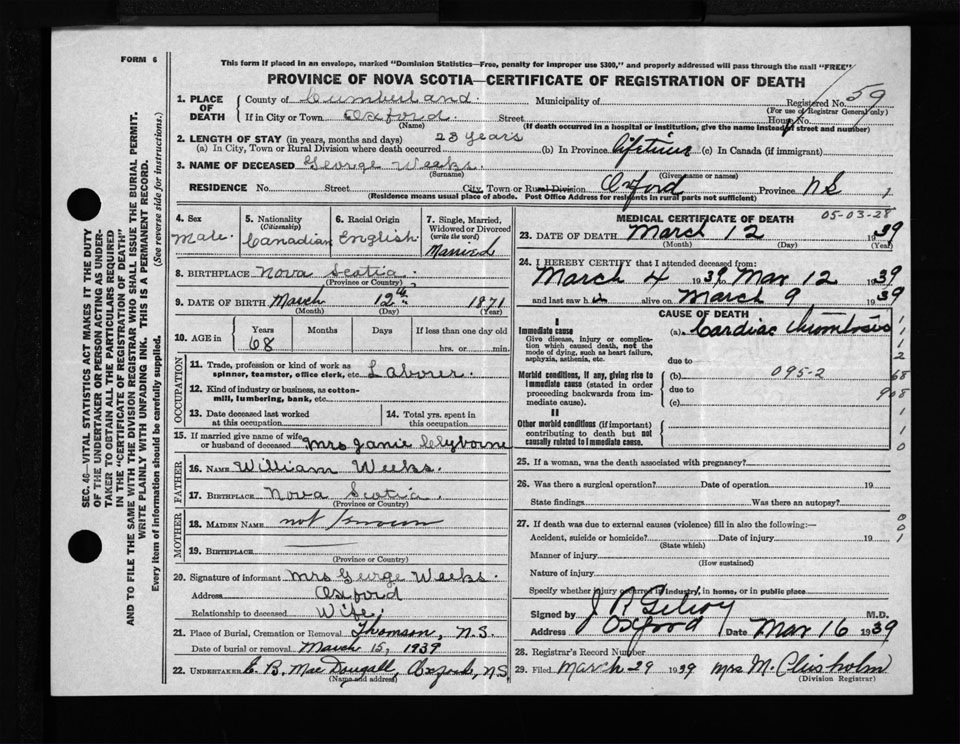 FORM 6
This form if placed in an envelope, marked "Dominion Statistics—Free, penalty for improper use $300," and properly addressed will pass through the mail "FREE"
PROVINCE OF NOVA SCOTIA—CERTIFICATE OF REGISTRATION OF DEATH
SEC. 46—VITAL STATISTICS ACT MAKES IT THE DUTY
OF THE UNDERTAKER OR PERSON ACTING AS UNDER-
TAKER TO OBTAIN ALL THE PARTICULARS REQUIRED
IN THE "CERTIFICATE OF REGISTRATION OF DEATH"
AND TO FILE THE SAME WITH THE DIVISION REGISTRAR WHO SHALL ISSUE THE BURIAL PERMIT.
WRITE PLAINLY WITH UNFADING INK. THIS IS A PERMANENT RECORD.
Every item of information should be carefully supplied. (See reverse side for instructions.)
1. PLACE OF DEATH County of Cumberland Municipality of Registered No. 59
(For use of Registrar General only)
If in City or Town Oxford Street House No.
(Name) (If death occurred in a hospital or institution, give the name instead of street and number)
2. LENGTH OF STAY (in years, months and days) 23 years
(a) In City, Town or Rural Division where death occurred (b) In Province Lifetime (c) In Canada (if immigrant)
3. NAME OF DECEASED George Weeks
(Surname) (Given name or names)
RESIDENCE No. Street City, Town or Rural Division Oxford Province N S 1
(Residence means usual place of abode. Post Office Address for residents in rural parts not sufficient)
4. Sex 5. Nationality (Citizenship) 6. Racial Origin 7. Single, Married, Widowed or Divorced (write the word)
Male Canadian English Married
8. BIRTHPLACE Nova Scotia
(Province or Country)
9. DATE OF BIRTH March 12th 1871
(Month) (Day) (Year)
10. AGE in Years Months Days If less than one day old
68 hrs. or min.
OCCUPATION
11. Trade, profession or kind of work as spinner, teamster, office clerk, etc. Laborer
12. Kind of industry or business, as cotton-mill, lumbering, bank, etc.
13. Date deceased last worked at this occupation 14. Total yrs. spent in this occupation
15. If married give name of wife or husband of deceased Mrs Janie Clyborne
FATHER
16. NAME William Weeks
17. BIRTHPLACE Nova Scotia
(Province or Country)
MOTHER
18. MAIDEN NAME not known
19. BIRTHPLACE
(Province or Country)
20. Signature of informant Mrs George Weeks
Address Oxford
Relationship to deceased Wife
21. Place of Burial, Cremation or Removal Thomson, N.S.
Date of burial or removal March 15, 1939
22. UNDERTAKER C. B. MacDougall, Oxford, N.S
(Name and address)
MEDICAL CERTIFICATE OF DEATH
05-03-28
23. DATE OF DEATH March 12 1939
(Month) (Day) (Year)
24. I HEREBY CERTIFY that I attended deceased from:
March 4 1939 to Mar 12 1939
and last saw h alive on March 9 1939
CAUSE OF DEATH
I
Immediate cause (a) Cardiac thrombosis
Give disease, injury or complication which caused death, not the mode of dying, such as heart failure, asphyxia, asthenia, etc.
due to
Morbid conditions, if any, giving rise to immediate cause (stated in order proceeding backwards from immediate cause). (b) 095-2
due to
(c)
II
Other morbid conditions (if important) contributing to death but not causally related to immediate cause.
1
1
1
2
68
908
1
1
0
25. If a woman, was the death associated with pregnancy?
26. Was there a surgical operation? Date of operation 19
State findings Was there an autopsy?
27. If death was due to external causes (violence) fill in also the following:—
Accident, suicide or homicide? Date of injury 19
(State which)
0
0
1
Manner of injury
(How sustained)
Nature of injury
Specify whether injury occurred in industry, in home, or in public place
Signed by J R Gilroy M.D.
Address Oxford Date Mar 16 1939
28. Registrar's Record Number
29. Filed March 29 1939 Mrs M. Chisholm
(Division Registrar)